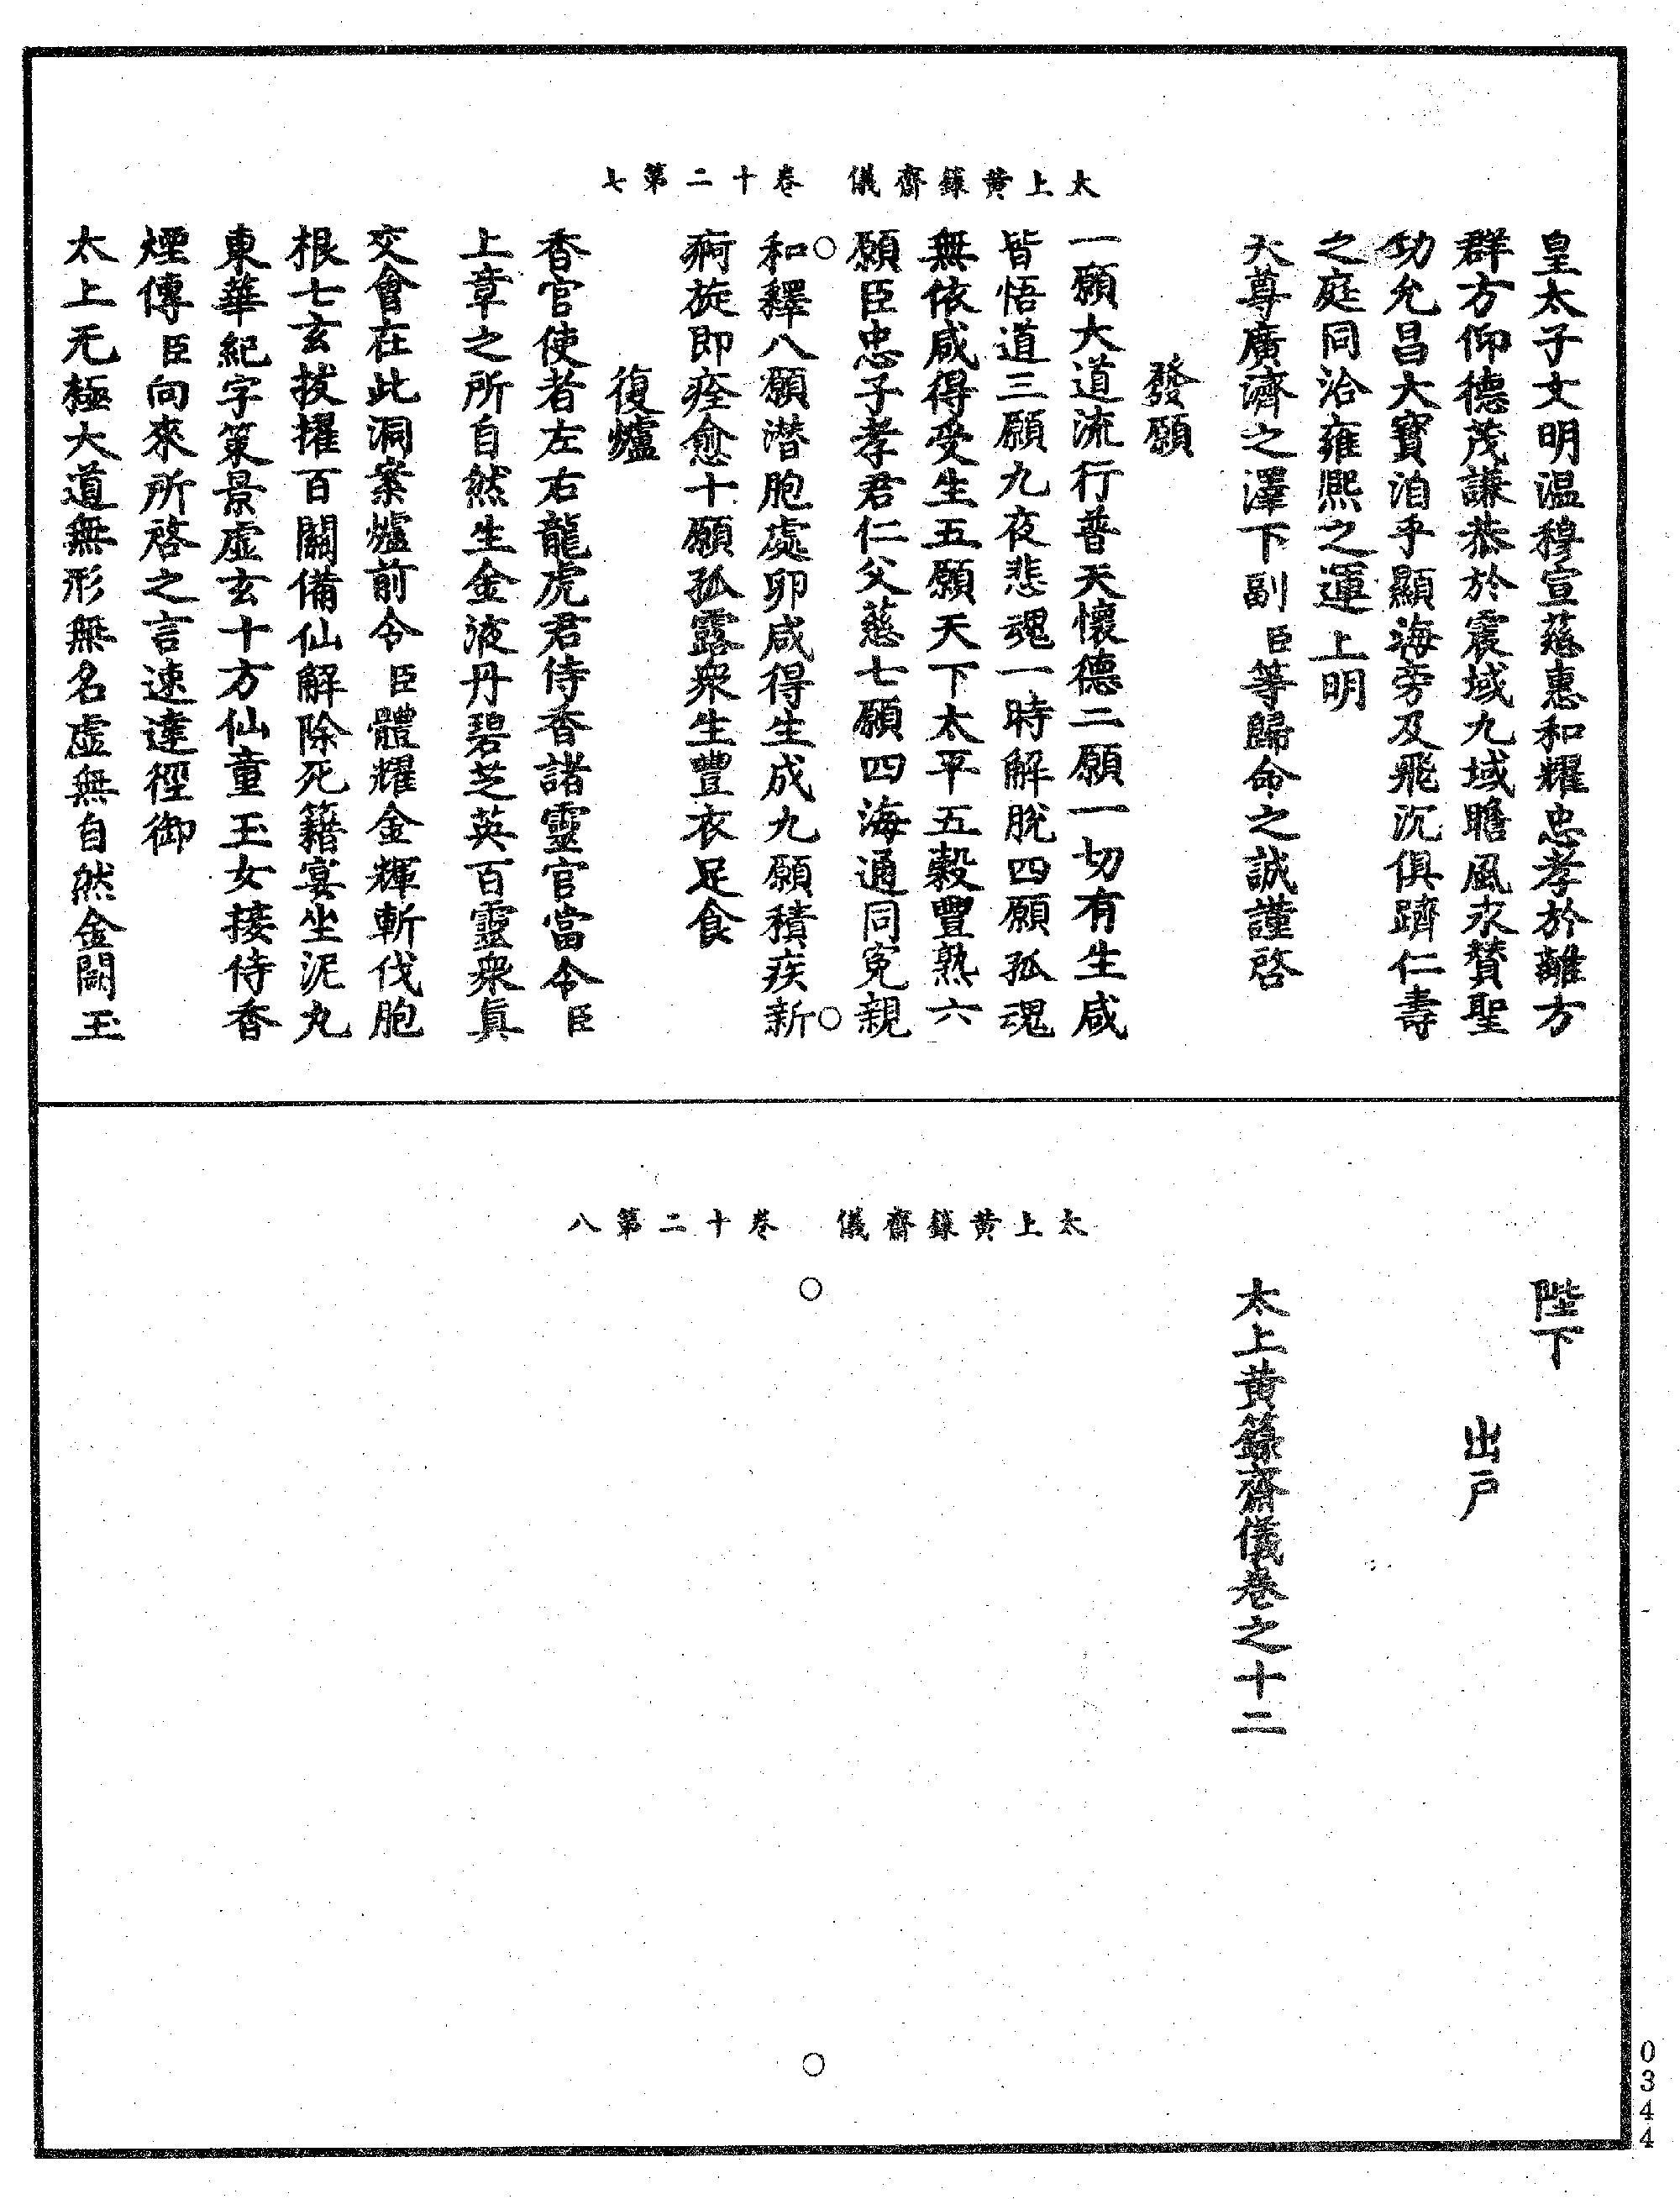 太上黃籙齋儀　卷十二第七
皇太子文明温穆宣慈惠和耀忠孝於離方
群方仰德茂謙恭於震域九域瞻風永賛聖
功允昌大寶洎乎顯海旁及飛沉俱躋仁壽
之庭同洽雍熙之運上明
天尊廣濟之澤下副臣等歸命之誠謹啓
發願
一願大道流行普天懷德二願一切有生咸
皆悟道三願九夜悲魂一時解脫四願孤魂
無依咸得受生五願天下太平五穀豐熟六
願臣忠子孝君仁父慈七願四海通同寃親
和釋八願潜胞處卵咸得生成九願積疾新
痾旋即痊愈十願孤露衆生豐衣足食
復爐
香官使者左右龍虎君侍香諸靈官當令臣
上章之所自然生金液丹碧芝英百靈衆眞
交會在此洞案爐前令臣體耀金輝斬伐胞
根七玄拔擢百關備仙解除死籍宴坐泥丸
東華紀字策景虛玄十方仙童玉女接侍香
煙傳臣向來所啓之言速達徑御
太上无極大道無形無名虛無自然金闕玉
太上黃籙齋儀　卷十二第八
陛下
出戶
太上黃籙齋儀卷之十二
0344